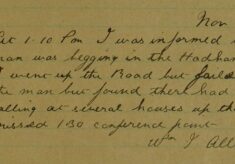 Nov
At 1-10 Pm I was informed
man was begging in the Hadham
I went up the Road but failed
man but found there had
calling at several houses up the
missed 1-30 conference point
Wm J. All